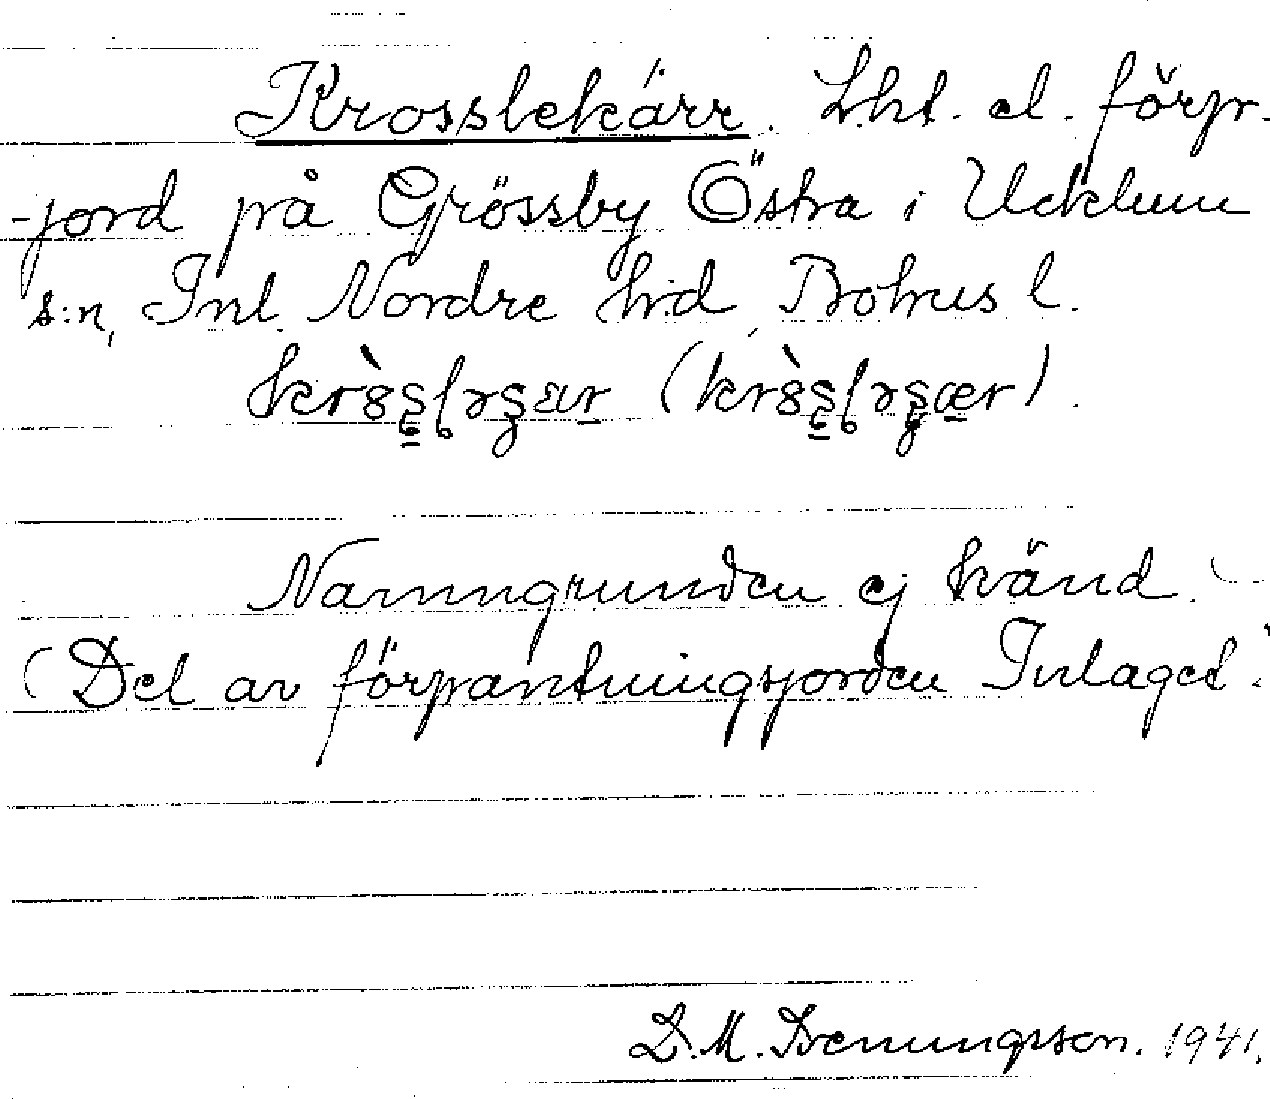 Krosslekärr. Lht. el. förp.
-jord på Grössby Östra i Ucklum
s:n, Inl. Nordre hrd, Bohus l.
Namngrunden ej känd.
(Del av förpantningsjorden Inlaget.
D. M. Svenungsson. 1941.